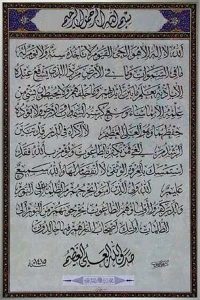 بسم الله الرحمن الرحيم
الله لا اله الا هو الحي القيوم لا تأخذه سنة ولا نوم له
ما في السموات وما في الارض من ذا الذي يشفع عنده
الا باذنه يعلم ما بين ايديهم وما خلفهم ولا يحيطون بشئ من
علمه الا بما شاء وسع كرسيه السموات والارض ولا يؤده
حفظهما وهو العلي العظيم لا اكراه في الدين قد تبين
الرشد من الغي فمن يكفر بالطاغوت ويؤمن بالله فقد
استمسك بالعروة الوثقى لا انفصام لها والله سميع
عليم الله ولي الذين آمنوا يخرجهم من الظلمات الى النور
والذين كفروا اولياؤهم الطاغوت يخرجونهم من النور الى
الظلمات اولئك اصحاب النار هم فيها خالدون
صدق الله العلي العظيم